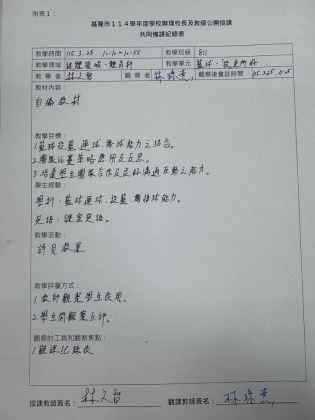 附表1：
基隆市114學年度學校辦理校長及教師公開授課
共同備課紀錄表
教學時間 115.3.25 10:10~10:55 教學班級 811
教學領域 健體領域-體育科 教學單元 籃球
教學者 林久智 觀察者 觀察後會談時間
教材內容：
自編教材
教學目標：
1.籃球投籃、運球、傳球能力之結合。
2.團隊比賽策略應用及反思。
3.培養學生團隊合作及良好溝通互動之能力。
學生經驗：
學科：籃球運球、投籃、傳接球能力。
英語：課室英語。
教學活動：
詳見教案
教學評量方式：
1.教師觀察學生表現。
2.學生間觀察互評。
觀察的工具和觀察焦點：
1.觀課紀錄表
授課教師簽名：林久智 觀課教師簽名：